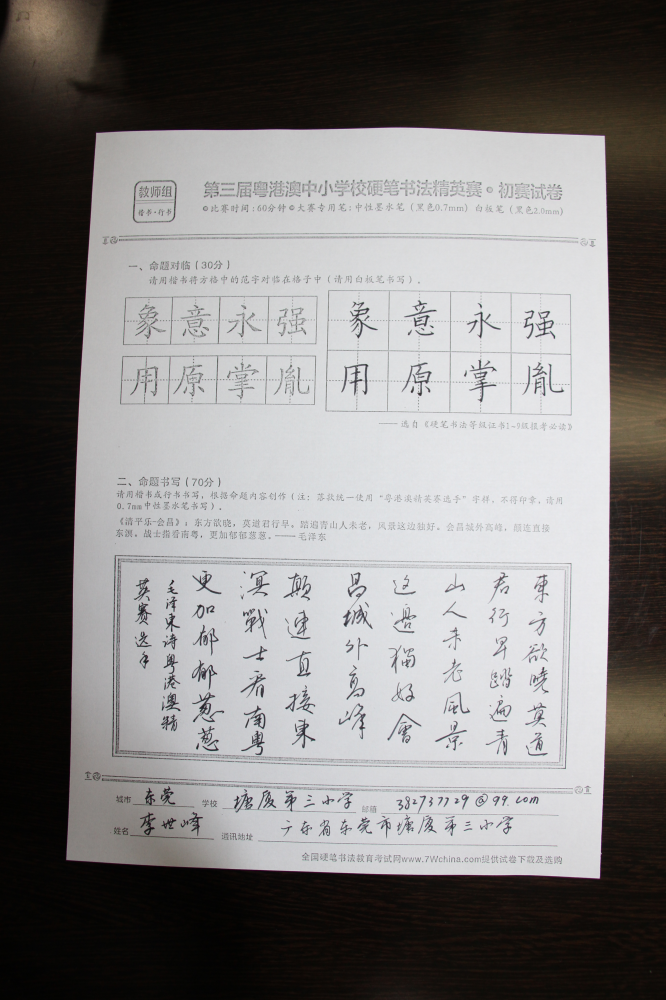 教师组
楷书·行书
第三届粤港澳中小学校硬笔书法精英赛·初赛试卷
比赛时间:60分钟 大赛专用笔:中性墨水笔(黑色0.7mm) 白板笔(黑色2.0mm)
一、命题对临(30分)
请用楷书将方格中的范字对临在格子中(请用白板笔书写)。
象意永强
用原掌胤
象意永强
用原掌胤
——选自《硬笔书法等级证书1-9级报考必读》
二、命题书写(70分)
请用楷书或行书书写,根据命题内容创作(注:落款统一使用“粤港澳精英赛选手”字样,不得印章,请用
0.7mm中性墨水笔书写)。
《清平乐·会昌》:东方欲晓,莫道君行早。踏遍青山人未老,风景这边独好。会昌城外高峰,颠连直接
东溟。战士指看南粤,更加郁郁葱葱。——毛泽东
東方欲曉莫道
君行早踏遍青
山人未老風景
这邊獨好會
昌城外高峰
顛連直接東
溟戰士看南粵
更加郁郁葱葱
毛泽東诗粤港澳精
英赛选手
城市 东莞 学校 塘厦第三小学 邮箱 382737729@qq.com
姓名 李世峰 通讯地址 广东省东莞市塘厦第三小学
全国硬笔书法教育考试网www.7Wchina.com提供试卷下载及选购